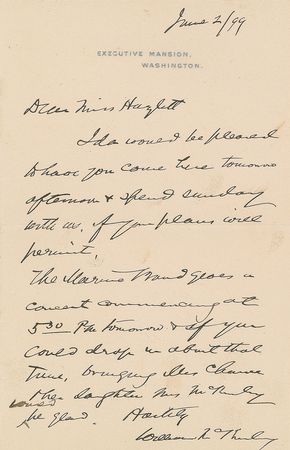 June 2/99
EXECUTIVE MANSION,
WASHINGTON.
Dear Miss Hazlett
Ida would be pleased
to have you come here tomorrow
afternoon & spend Sunday
with us, if your plans will
permit.
The Marine Band gives a
concert commencing at
5 30 PM tomorrow & if you
could drop in about that
time, bringing
daughter Mrs McKinley
would be glad. Hastily
William McKinley